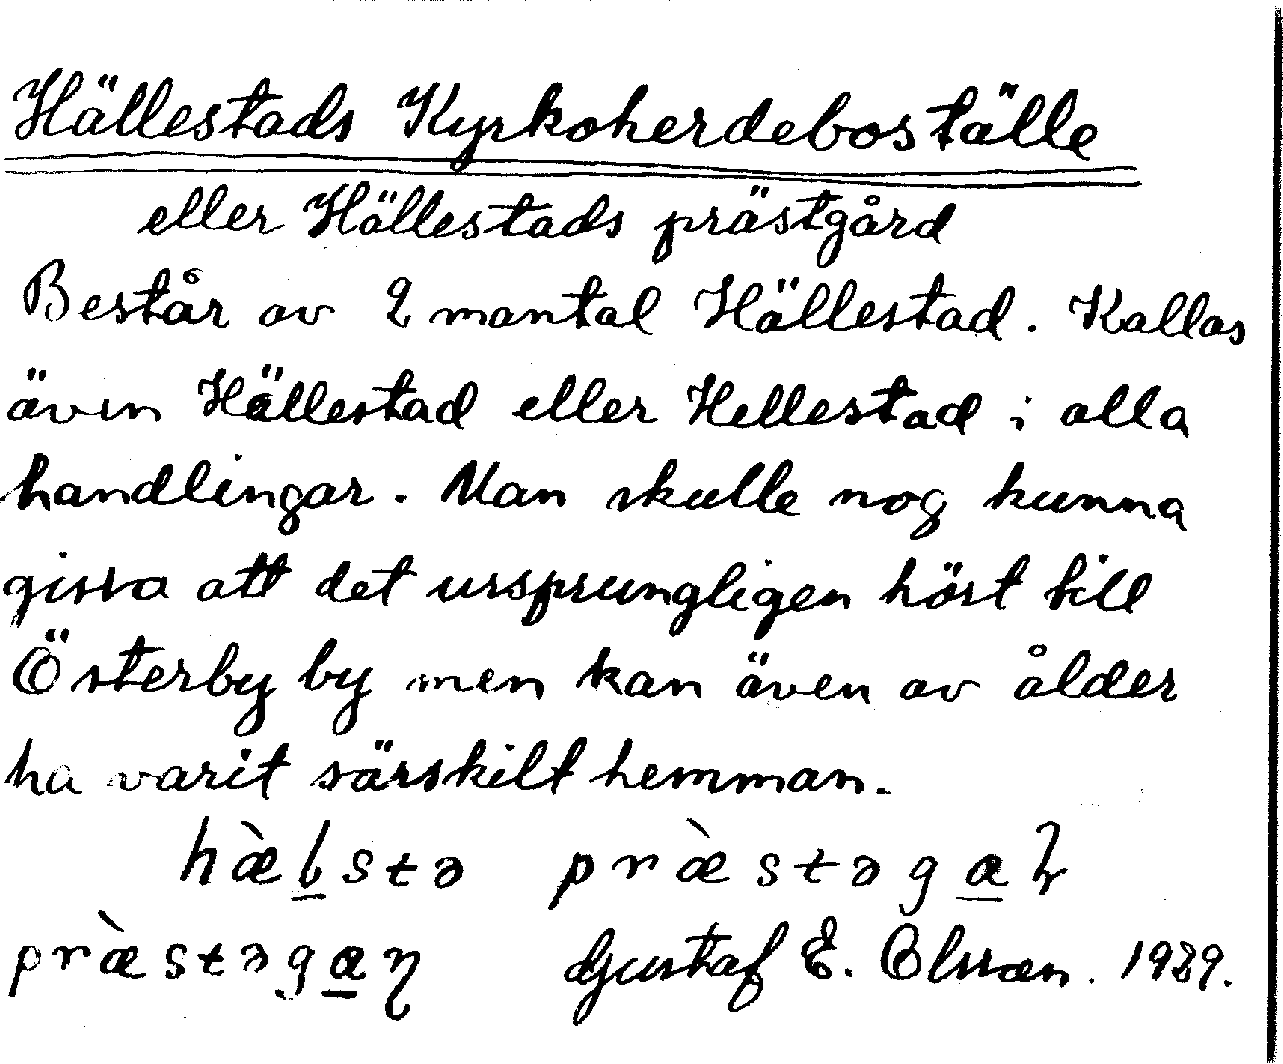 Hällestads Kyrkoherdeboställe
eller Hällestads prästgård
Består av 2 mantal Hällestad. Kallas
även Hällestad eller Hellestad i alla
handlingar. Man skulle nog kunna
gissa att det ursprungligen hört till
Österby by men kan även av ålder
ha varit särskilt hemman.
hæ̀lstə præ̀stəgaɽ
præ̀stəgaɳ Gustaf E. Olsson. 1929.